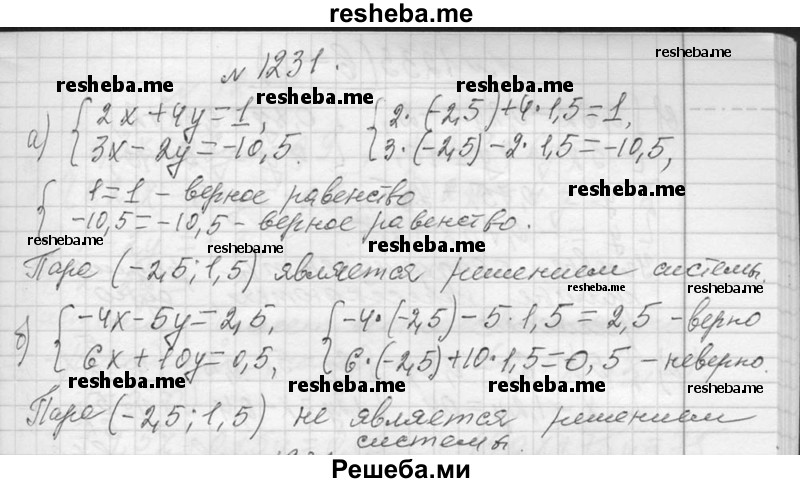 resheba.me
№ 1231.
resheba.me
resheba.me
resheba.me
resheba.me
а) { 2x + 4y = 1, { 2·(-2,5) + 4·1,5 = 1,
3x - 2y = -10,5. 3·(-2,5) - 2·1,5 = -10,5,
{ 1 = 1 - верное равенство
resheba.me
-10,5 = -10,5 - верное равенство.
resheba.me
resheba.me
resheba.me
Пара (-2,5; 1,5) является решением системы.
resheba.me
resheba.me
б) { -4x - 5y = 2,5, { -4·(-2,5) - 5·1,5 = 2,5 - верно
6x + 10y = 0,5, 6·(-2,5) + 10·1,5 = 0,5 - неверно.
resheba.me
resheba.me
resheba.me
resheba.me
Пара (-2,5; 1,5) не является решением
системы.
Решеба.ми